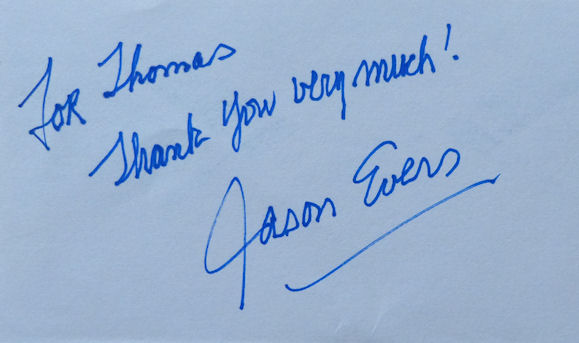 For Thomas
Thank you very much!
Jason Evers